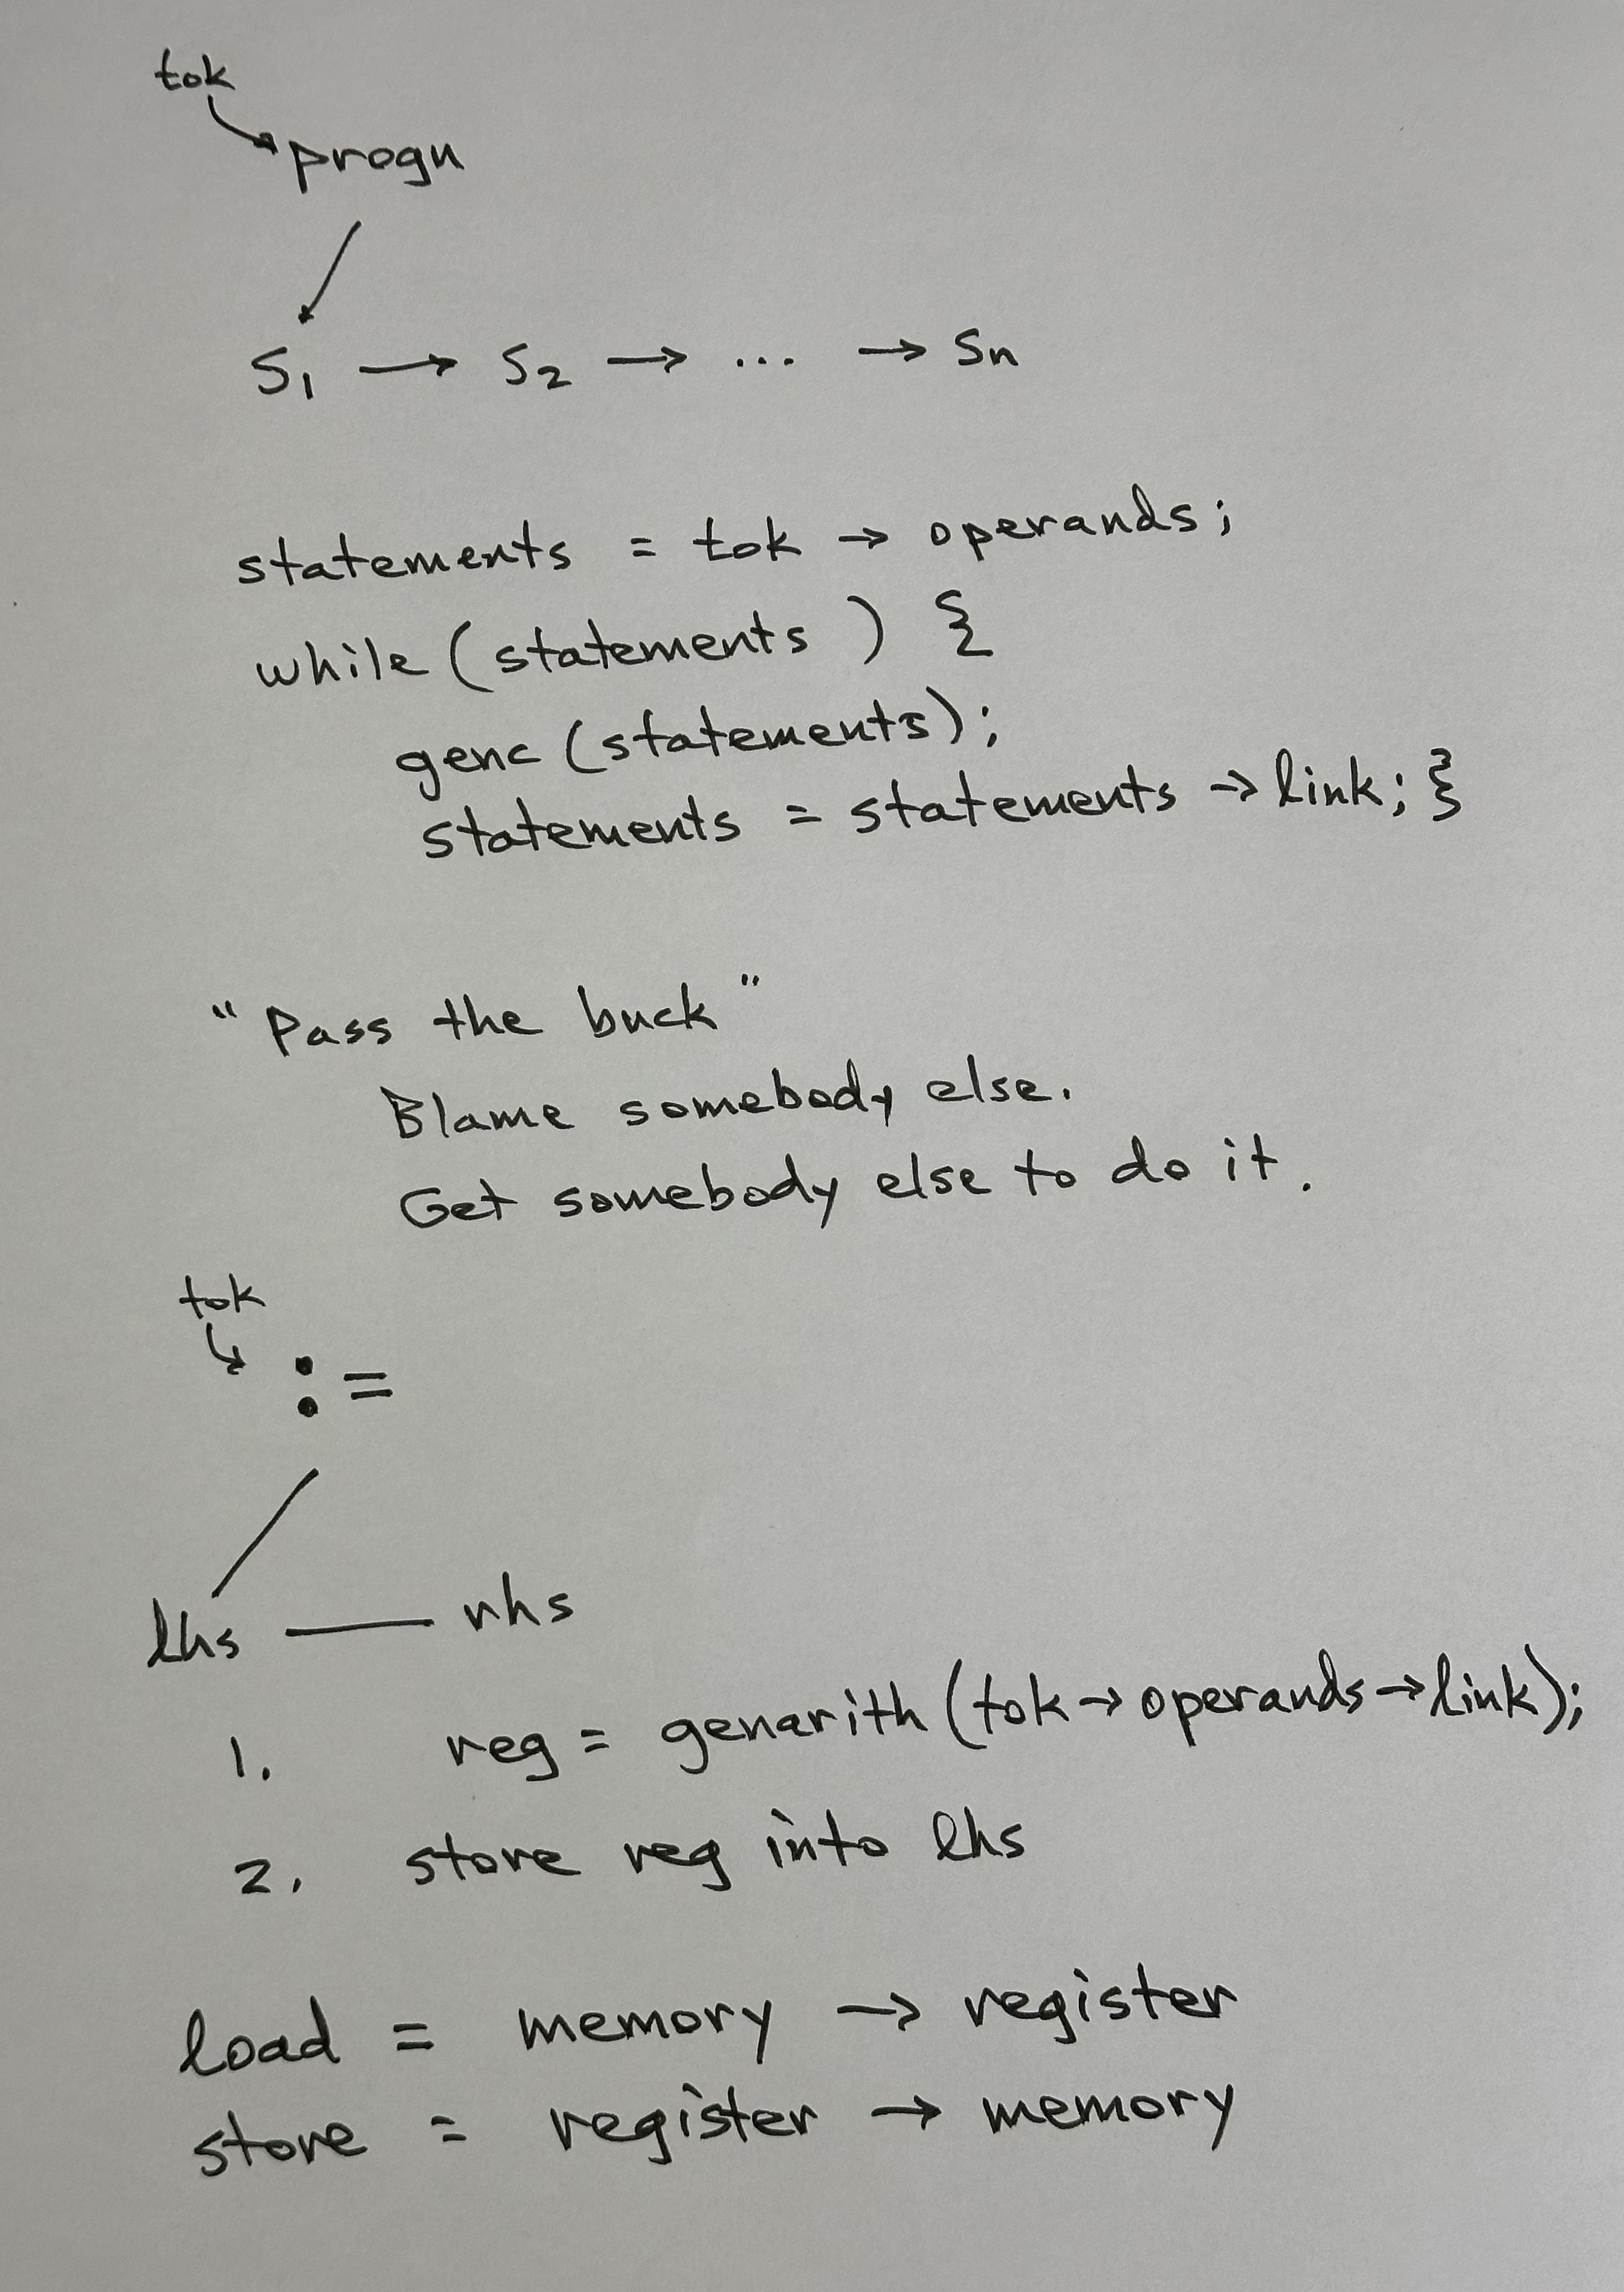 tok
progn
S1 → S2 → ... → Sn
statements = tok → operands;
while (statements) {
genc (statements);
statements = statements → link; }
"Pass the buck"
Blame somebody else.
Get somebody else to do it.
tok
:=
lhs — rhs
1. reg = genarith (tok → operands → link);
2. store reg into lhs
load = memory → register
store = register → memory